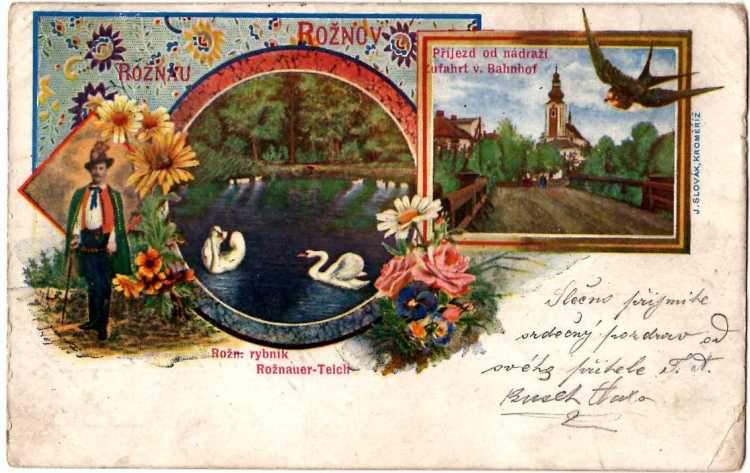 ROŽNOV
ROŽNAU
Příjezd od nádraží
Zufahrt v. Bahnhof
J. SLOVÁK, KROMĚŘÍŽ
Rožn. rybník
Rožnauer-Teich
Slečno přijmite
srdečný pozdrav od
svého přítele